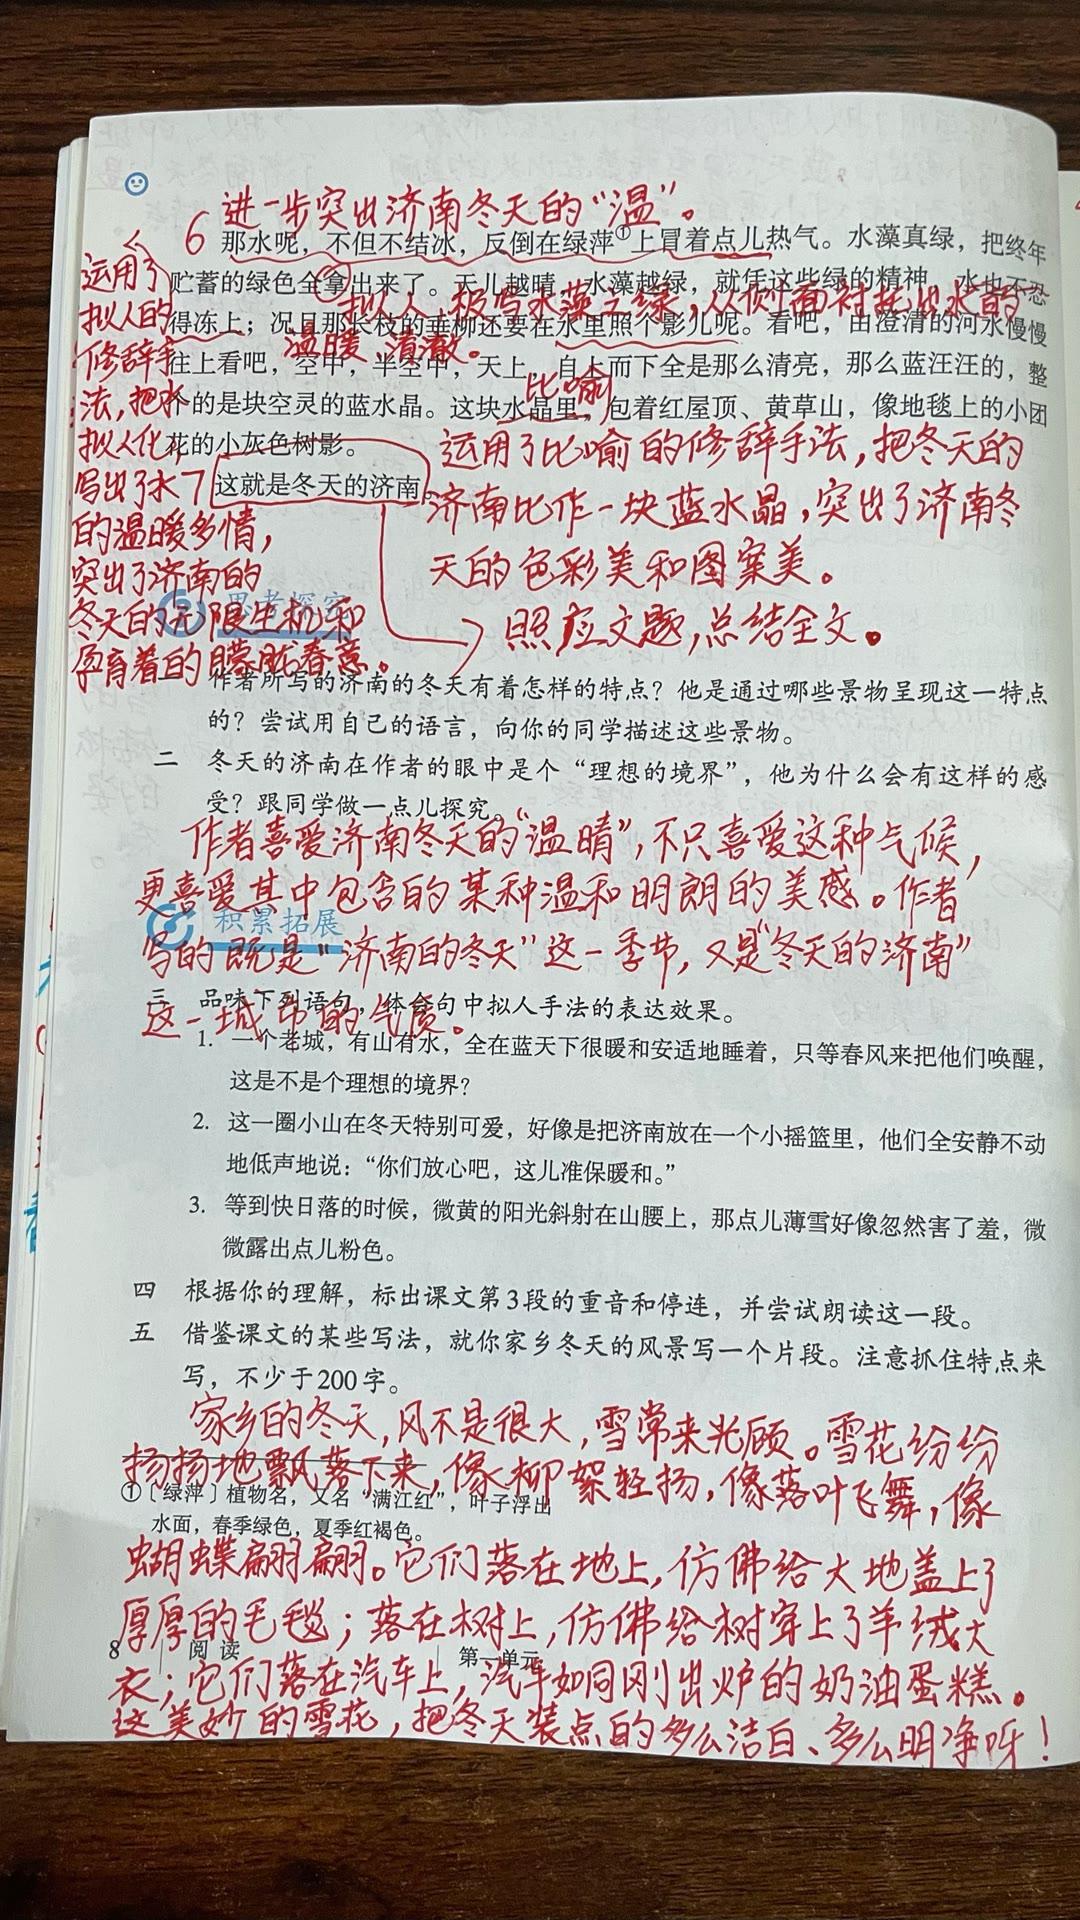 进一步突出济南冬天的“温”。
6 那水呢，不但不结冰，反倒在绿萍①上冒着点儿热气。水藻真绿，把终年
贮蓄的绿色全拿出来了。天儿越晴，水藻越绿，就凭这些绿的精神，水也不忍
拟人，极写水藻之绿，从侧面衬托出水的
得冻上；况且那长枝的垂柳还要在水里照个影儿呢。看吧，由澄清的河水慢慢
温暖、清澈。
往上看吧，空中，半空中，天上，自上而下全是那么清亮，那么蓝汪汪的，整
比喻
个的是块空灵的蓝水晶。这块水晶里，包着红屋顶、黄草山，像地毯上的小团
花的小灰色树影。
7 这就是冬天的济南。
运用了
拟人的
修辞手
法，把水
拟人化，
写出了水
的温暖多情，
突出了济南的
冬天的无限生机和
孕育着的朦胧春意。
运用了比喻的修辞手法，把冬天的
济南比作一块蓝水晶，突出了济南冬
天的色彩美和图案美。
照应文题，总结全文。
思考探究
作者所写的济南的冬天有着怎样的特点？他是通过哪些景物呈现这一特点
的？尝试用自己的语言，向你的同学描述这些景物。
二 冬天的济南在作者的眼中是个“理想的境界”，他为什么会有这样的感
受？跟同学做一点儿探究。
作者喜爱济南冬天的“温晴”，不只喜爱这种气候，
更喜爱其中包含的某种温和明朗的美感。作者
积累拓展
写的既是“济南的冬天”这一季节，又是“冬天的济南”
这一城市的气质。
三 品味下列语句，体会句中拟人手法的表达效果。
1. 一个老城，有山有水，全在蓝天下很暖和安适地睡着，只等春风来把他们唤醒，
这是不是个理想的境界？
2. 这一圈小山在冬天特别可爱，好像是把济南放在一个小摇篮里，他们全安静不动
地低声地说：“你们放心吧，这儿准保暖和。”
3. 等到快日落的时候，微黄的阳光斜射在山腰上，那点儿薄雪好像忽然害了羞，微
微露出点儿粉色。
四 根据你的理解，标出课文第3段的重音和停连，并尝试朗读这一段。
五 借鉴课文的某些写法，就你家乡冬天的风景写一个片段。注意抓住特点来
写，不少于200字。
家乡的冬天，风不是很大，雪常来光顾。雪花纷纷
扬扬地飘落下来，像柳絮轻扬，像落叶飞舞，像
①〔绿萍〕植物名，又名“满江红”，叶子浮出
水面，春季绿色，夏季红褐色。
蝴蝶翩翩。它们落在地上，仿佛给大地盖上了
厚厚的毛毯；落在树上，仿佛给树穿上了羊绒大
8 阅读 第一单元
衣；它们落在汽车上，汽车如同刚出炉的奶油蛋糕。
这美妙的雪花，把冬天装点的多么洁白、多么明净呀！